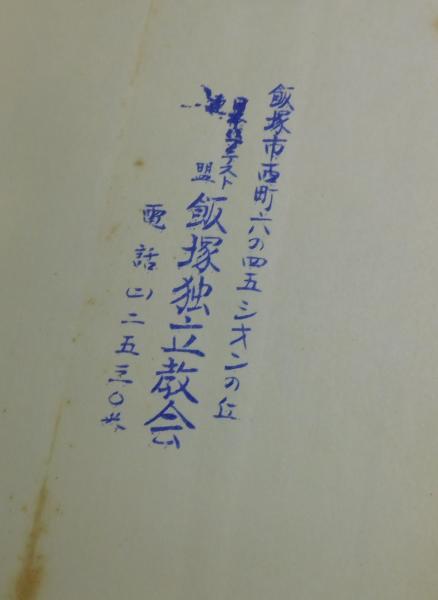 飯塚市西町六の四五シオンの丘
日本バプテスト
連盟
飯塚独立教会
電話(二)二五三〇